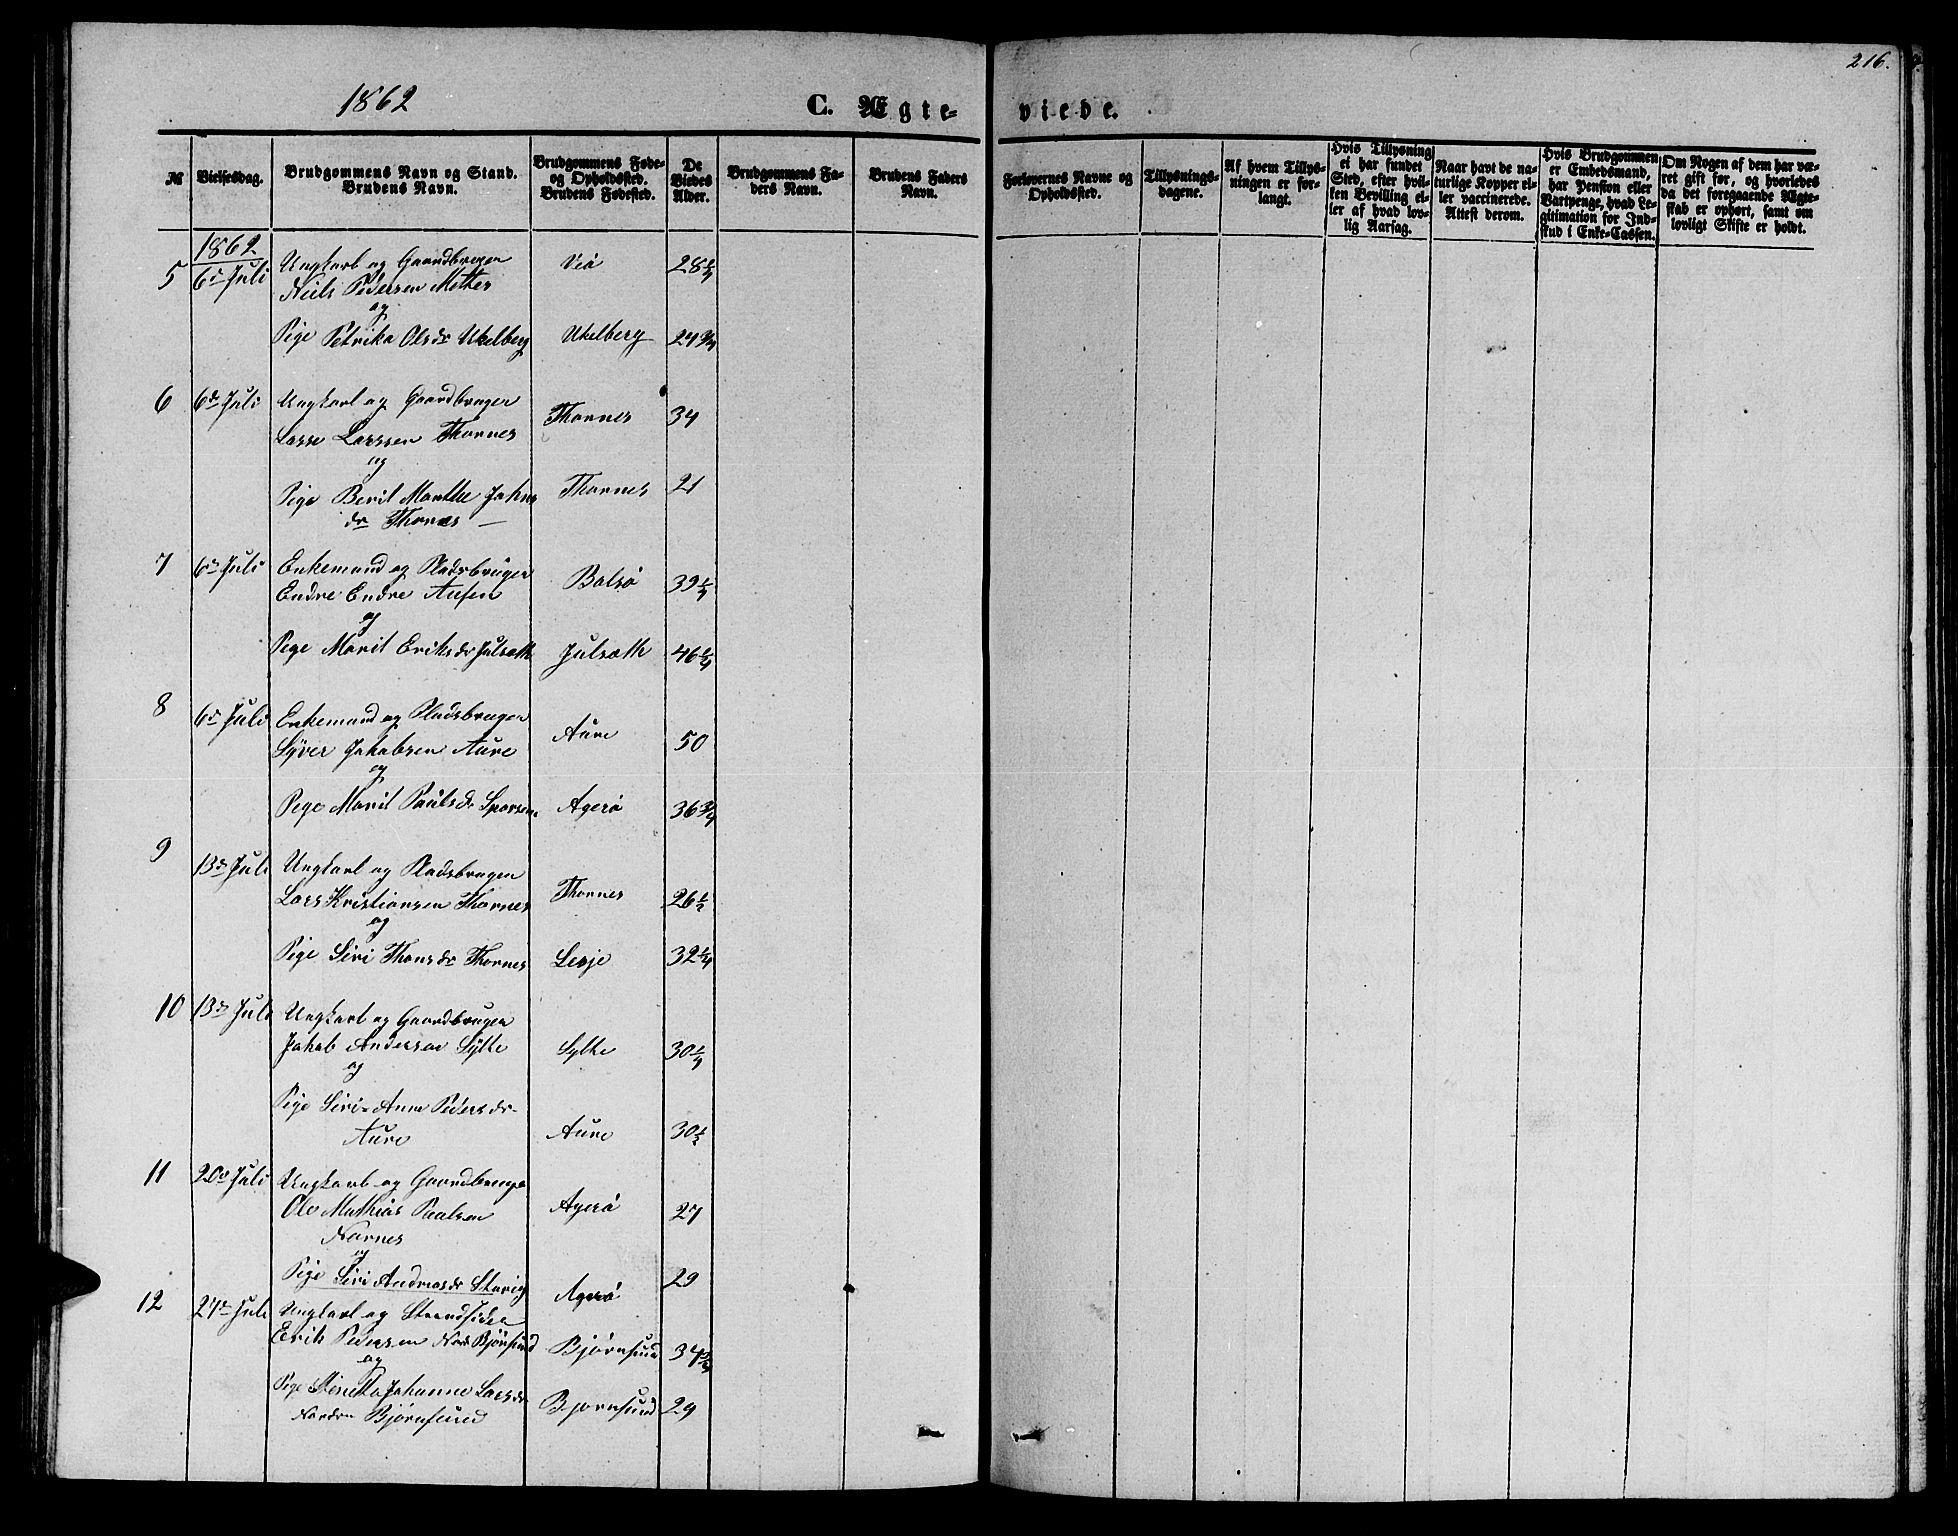 1862
C. Ægte-
viede.
216.
№
Vielsesdag.
Brudgommens Navn og Stand.
Brudens Navn.
Brudgommens Føde-
og Opholdssted.
Brudens Fødested.
De
Viedes
Alder.
Brudgommens Fa-
ders Navn.
Brudens Faders
Navn.
Forlovernes Navne og
Opholdssted.
Tillysnings-
dagene.
Af hvem Tillys-
ningen er for-
langt.
Hvis Tillysning
ei har fundet
Sted, efter hvil-
ken Bevilling el-
ler af hvad lov-
lig Aarsag.
Naar havt de na-
turlige Kopper el-
ler vaccinerede.
Attest derom.
Hvis Brudgommen
er Embedsmand,
har Pension eller
Vartpenge, hvad Le-
gitimation for Ind-
skud i Enke-Cassen.
Om Nogen af dem har væ-
ret gift før, og hvorledes
da det foregaaende Ægte-
skab er ophørt, samt om
lovligt Skifte er holdt.
1862
5 6de Juli Ungkarl og Gaardbruger Veø 28 1/4
Niels Pedersen
og
Pige Petrika Olsdr Ukelberg Ukelberg 24 3/4
6 6de Juli Ungkarl og Gaardbruger Thornes 34
Lasse Larssen Thornes
og
Pige Beril Marthe Johns Thornes 21
dr Thornes
7 6de Juli Enkemand og Pladsbruger Bolsø 39 1/4
Endre Endre Aufen
og
Pige Marit Eriksdr Julsæth Julsæth 46 1/4
8 6de Juli Enkemand og Pladsbruger Aure 50
Syver Jakobsen Aure
og
Pige Marit Paulsdr Agerø 36 3/4
9 13de Juli Ungkarl og Pladsbruger Thornes 26 1/2
Lars Kristiansen Thornes
og
Pige Siri Thorsdr Thornes Lesje 32 1/4
10 13de Juli Ungkarl og Gaardbruger Sylte 30 1/4
Jakob Andersen Sylte
og
Pige Siri-Anne Pedersdr Aure 30 1/2
Aure
11 20de Juli Ungkarl og Gaardbruger Agerø 27
Ole Mathias Paulsen
Harnes
og
Pige Siri Andreasdr Agerø 29
12 24de Juli Ungkarl og Strandsider
Erik Pedersen Nord Bjørnsund Bjørnsund 34 3/4
og
Pige Johanne Larsdr Bjørnsund 29
Nordre Bjørnsund